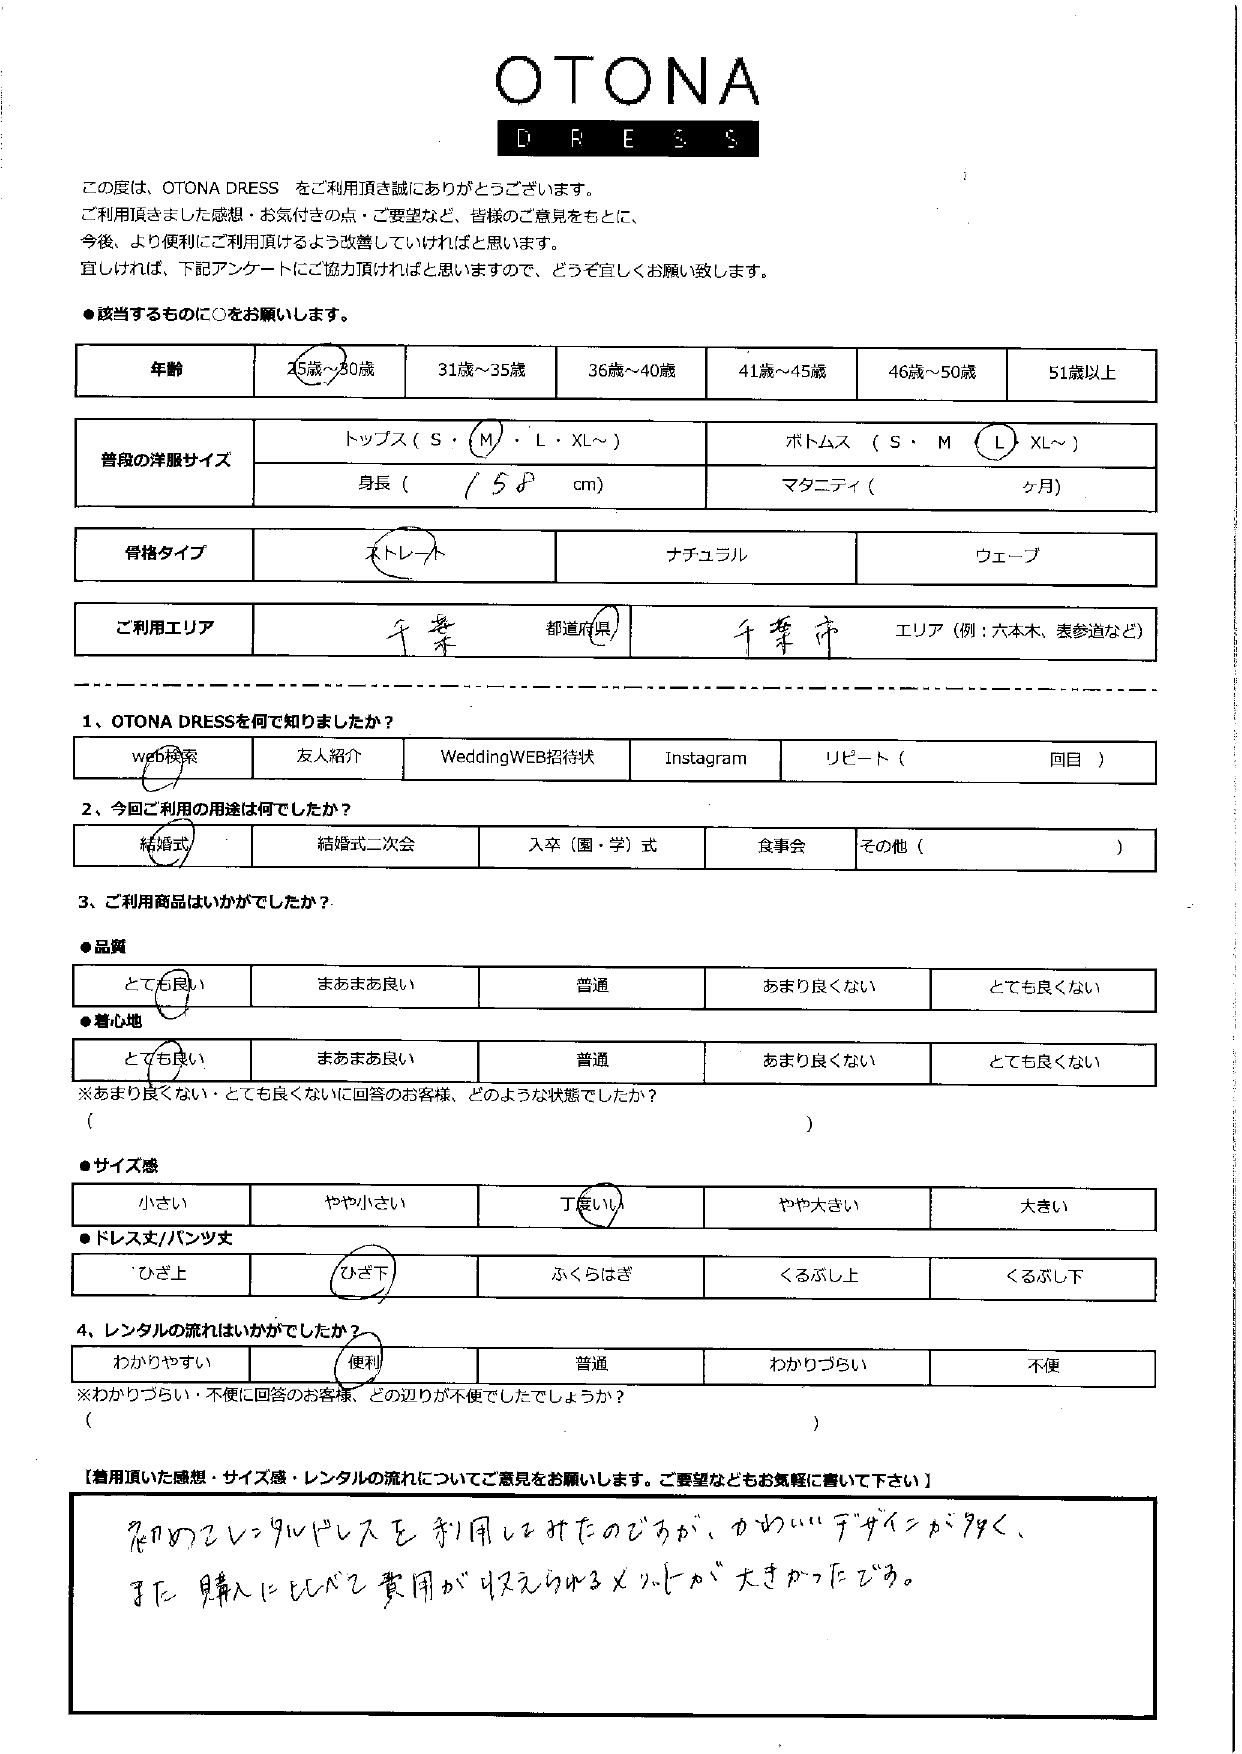 OTONA
DRESS
この度は、OTONA DRESS をご利用頂き誠にありがとうございます。
ご利用頂きました感想・お気付きの点・ご要望など、皆様のご意見をもとに、
今後、より便利にご利用頂けるよう改善していければと思います。
宜しければ、下記アンケートにご協力頂ければと思いますので、どうぞ宜しくお願い致します。
●該当するものに○をお願いします。
年齢 25歳～30歳 31歳～35歳 36歳～40歳 41歳～45歳 46歳～50歳 51歳以上
普段の洋服サイズ
トップス ( S ・ M ・ L ・ XL～ ) ボトムス ( S ・ M ・ L ・ XL～ )
身長 ( 158 cm) マタニティ ( ケ月)
骨格タイプ ストレート ナチュラル ウェーブ
ご利用エリア 千葉 都道府県 千葉市 エリア（例：六本木、表参道など）
1、OTONA DRESSを何で知りましたか？
web検索 友人紹介 WeddingWEB招待状 Instagram リピート ( 回目 )
2、今回ご利用の用途は何でしたか？
結婚式 結婚式二次会 入卒（園・学）式 食事会 その他 ( )
3、ご利用商品はいかがでしたか？
●品質
とても良い まあまあ良い 普通 あまり良くない とても良くない
●着心地
とても良い まあまあ良い 普通 あまり良くない とても良くない
※あまり良くない・とても良くないに回答のお客様、どのような状態でしたか？
( )
●サイズ感
小さい やや小さい 丁度いい やや大きい 大きい
●ドレス丈/パンツ丈
ひざ上 ひざ下 ふくらはぎ くるぶし上 くるぶし下
4、レンタルの流れはいかがでしたか？
わかりやすい 便利 普通 わかりづらい 不便
※わかりづらい・不便に回答のお客様、どの辺りが不便でしたでしょうか？
( )
【着用頂いた感想・サイズ感・レンタルの流れについてご意見をお願いします。ご要望などもお気軽に書いて下さい】
初めてレンタルドレスを利用してみたのですが、かわいいデザインが多く、
また購入に比べて費用が収えられるメリットが大きかったです。